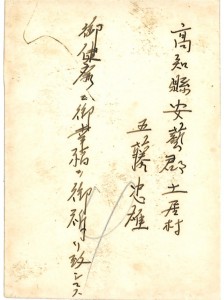 高知縣安藝郡土居村
五藤忠雄
御健康ト御幸福ヲ御祈リ致シマス